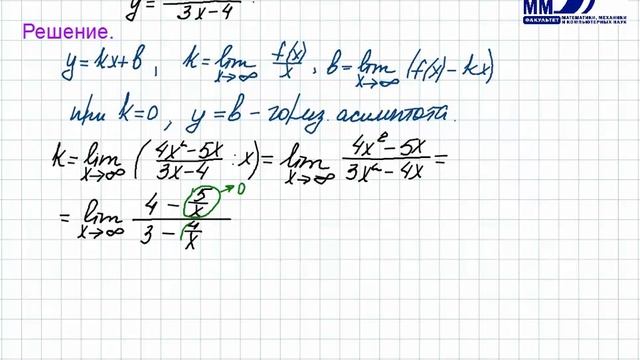 y = ─── 3x-4 .
ММ
ФАКУЛЬТЕТ МАТЕМАТИКИ, МЕХАНИКИ И КОМПЬЮТЕРНЫХ НАУК
Решение.
y=kx+b, k=lim x→∞ f(x)/x, b=lim x→∞ (f(x)-kx)
при k=0, y=b - гориз. асимптота.
k=lim x→∞ ( (4x²-5x)/(3x-4) : x ) = lim x→∞ (4x²-5x)/(3x²-4x) =
= lim x→∞ (4 - 5/x)/(3 - 4/x) →0